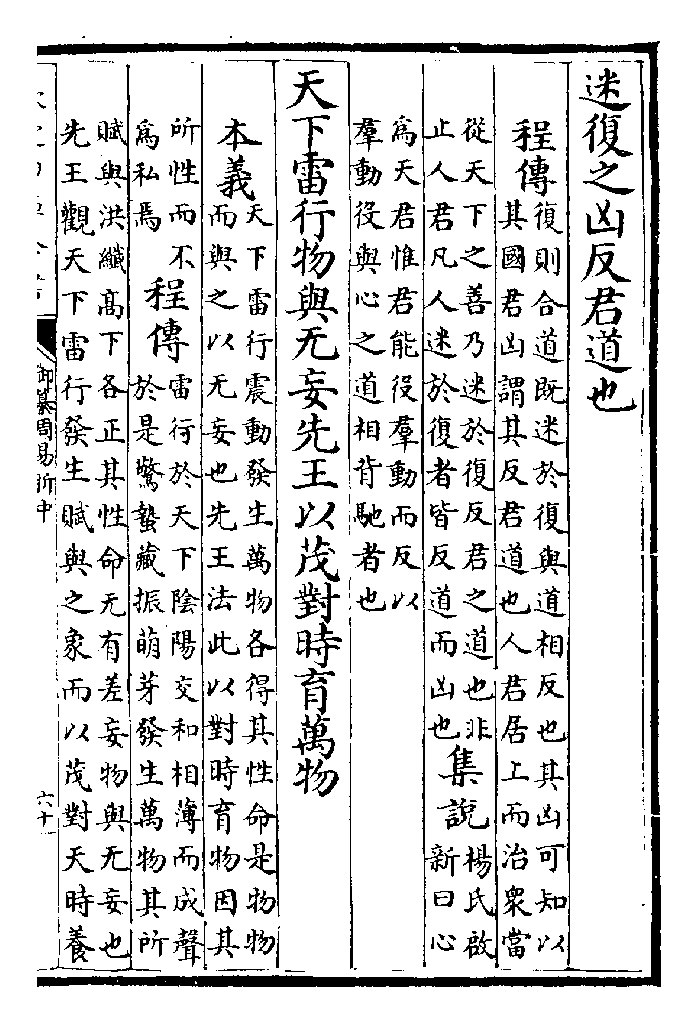 迷復之凶反君道也
程傳
復則合道既迷於復與道相反也其凶可知以
其國君凶謂其反君道也人君居上而治衆當
從天下之善乃迷於復反君之道也非
止人君凡人迷於復者皆反道而凶也
集說
楊氏啟
新曰心
為天君惟君能役羣動而反以
羣動役與心之道相背馳者也
天下雷行物與无妄先王以茂對時育萬物
本義
天下雷行震動發生萬物各得其性命是物物
而與之以无妄也先王法此以對時育物因其
所性而不
為私焉
程傳
雷行於天下陰陽交和相薄而成聲
於是驚蟄藏振萌芽發生萬物其所
賦與洪纖高下各正其性命无有差妄物與无妄也
先王觀天下雷行發生賦與之象而以茂對天時養
御纂周易折中
六十一